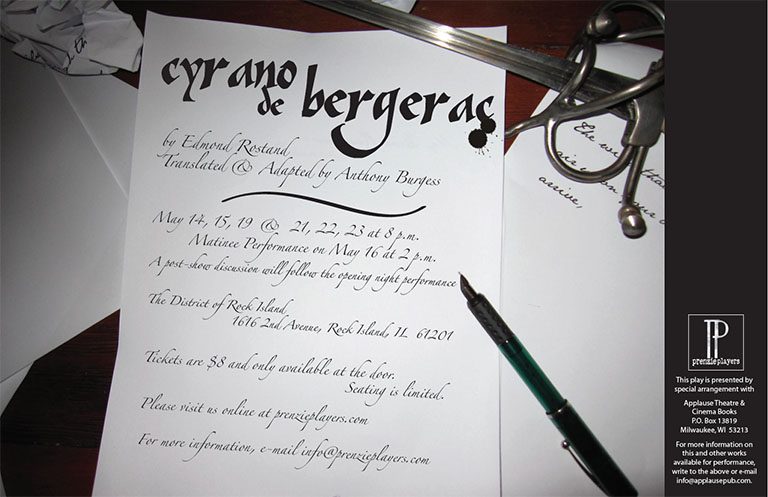 cyrano
de bergerac
by Edmond Rostand
Translated & Adapted by Anthony Burgess
May 14, 15, 19 @ 21, 22, 23 at 8 p.m.
Matinee Performance on May 16 at 2 p.m.
A post-show discussion will follow the opening night performance
The District of Rock Island
1616 2nd Avenue, Rock Island, IL 61201
Tickets are $8 and only available at the door.
Seating is limited.
Please visit us online at prenzieplayers.com
For more information, e-mail info@prenzieplayers.com
The
arrive,
PP
prenzie players
This play is presented by
special arrangement with
Applause Theatre &
Cinema Books
P.O. Box 13819
Milwaukee, WI 53213
For more information on
this and other works
available for performance,
write to the above or e-mail
info@applausepub.com.